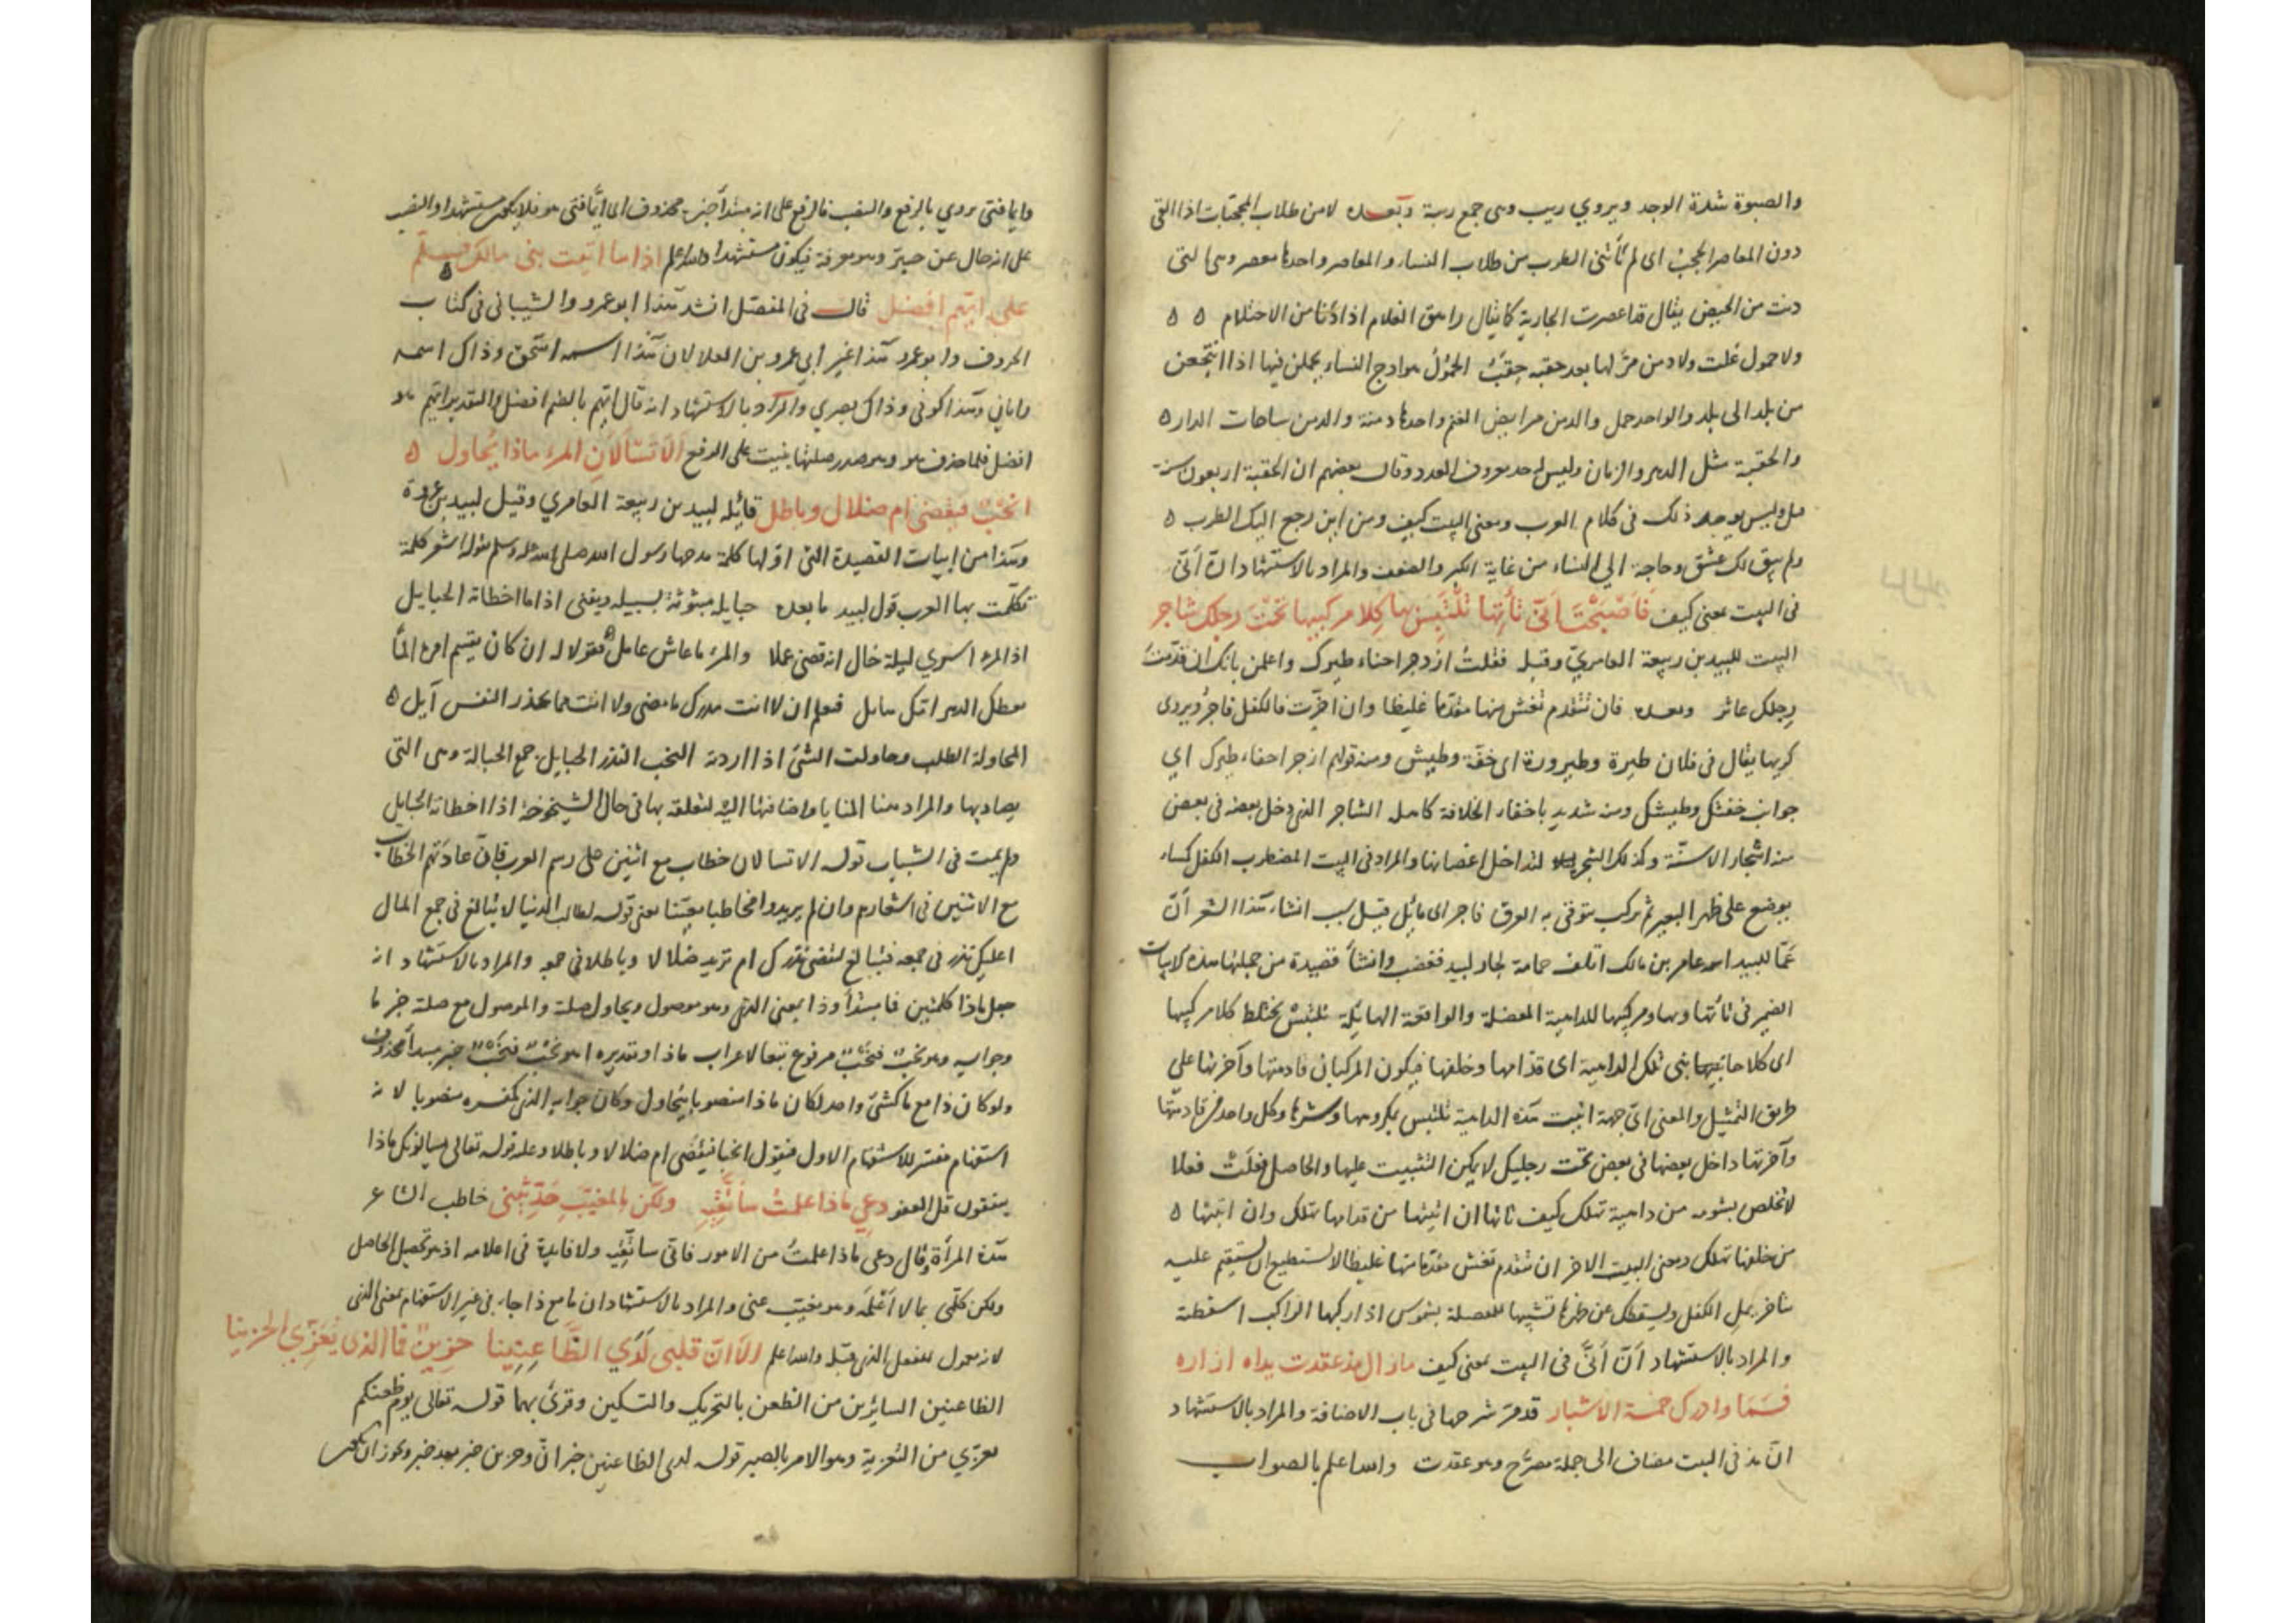 والصبوة شدة الوجد ويروي ريب وهى جمع ريبة وبعده لا من طلاب المحجبات اذا القى
دون المعاصر الحجب اى لم تأتنى الطرب من طلاب النساء والمعاصر واحدها معصر وهى التى
دنت من الحيض يقال قد اعصرت الجارية كما يقال راهق الغلام اذا دنا من الاحتلام ه ه
ولا حمول غلت ولا دمن مر لها بعد حقبه حقب الحمول هوادج النساء يحملن فيها اذا انتجعن
من بلد الى بلد والواحد حمل والدمن مرابض الغنم واحدها دمنة والدمن ساحات الدار ه
والحقبة مثل الدهر والزمان وليس لحد معروف العدد وقال بعضهم ان الحقبة اربعون سنة
وليس يوجد ذلك فى كلام العرب ومعنى البيت كيف ومن اين رجع اليك الطرب ه
ولم يبق لك عشق وحاجة الى النساء من غاية الكبر والضعف والمراد بالاستشهاد ان أنّى
فى البيت بمعنى كيف فَاَصْبَحْتَ اَنّى تَأْتِها تَلْتَبِسْ بها كِلا مركبيها تَحْتَ رجلك شاجر
البيت للبيد بن ربيعة العامريّ وقبله فقلتُ ازدجر احناء طيرك واعلمن بانك ان قدّمتَ
رجلك عاثر وبعده فان تتقدم تغش منها مقدّما غليظا وان اخّرت فالكفل فاجر ويروى
كريها يقال فى فلان طيرة وطيرورة اى خفّة وطيش ومنه قولهم ازجر احناء طيرك اي
جوانب خفتك وطيشك الشاجر الذى دخل بعضه فى بعض
منه اشجار الاسنّة وكذلك الشجر لتداخل اغصانها والمراد فى البيت المضطرب الكفل كساء
يوضع على ظهر البعير ثم يركب يتوقى به العرق فاجر اى مائل قيل سبب انشاء هذا الشعر أنّ
عَمّا للبيد اسمه عامر بن مالك اتلف حمامة لجار لبيد فغضب وانشأ قصيدة من جملتها هذه الابيات
الضمير فى تأتها وبها ومركبيها للداهية المعضلة والواقعة الهايلة تلتبس تختلط كلا مركبيها
اى كلا جانبيها تلك الداهية اى قدّامها وخلفها فيكون المركبان قادمتها وآخرتها على
طريق التمثيل والمعنى اىّ جهة اتيت هذه الداهية تلتبس بمكروهها وشرها وكل واحد من قادمتها
وآخرتها داخل بعضها فى بعض تحت رجليك لا يمكن التثبيت عليها والحاصل فعلتَ فعلا
لا تخلص بشومه من داهية تهلك كيف تاتها ان اتيتها من قدامها تهلك وان اتيتها ه
من خلفها تهلك ومعنى البيت الاخر ان تتقدم تغش مقدّما منها غليظا لا تستطيع ان تستقيم عليه
الكفل ويسقطك عن ظهرها تشبيها للمعضلة بشموس اذا ركبها الراكب اسقطته
والمراد بالاستشهاد اَنّ اَنّى فى البيت بمعنى كيف ما زال مذ عقدت يداه ازاره
فَسَمَا وادرك خمسة الاشبار قد مرّ شرحها فى باب الاضافة والمراد بالاستشهاد
انّ مذ فى البيت مضاف الى جملة مصرّح وهو عقدت والله اعلم بالصواب
وايما فتى يروي بالرفع والنصب فالرفع على انه مبتدأ خبره محذوف اى ايّما فتى هو فلا يكون مستشهدا والنصب
على انه حال عن حبتر وهو معرفة فيكون مستشهدا والله اعلم اذا ما اتيت بنى مالك فسلّم
على ايّهم افضل قال فى المفصّل انشد هذا ابو عمرو الشيبانى فى كتاب
الحروف وابو عمرو هذا غير ابي عمرو بن العلا لان هذا اسمه اسحق وذاك اسمه
وهذا كوفى وذاك بصري والمراد بالاستشهاد انه قال ايّهم بالضم افضل والتقدير ايّهم هو
افضل فلما حذف هو وهو صدر صلتها بنيت على الرفع اَلَا تَسْأَلَانِ المرء ماذا يُحاول ه
انَحْبٌ فيُقضى ام ضلال وباطل قائله لبيد بن ربيعة العامري وقيل لبيد بن عروة
وهذا من ابيات القصيدة التى اوّلها كلمة مدحها رسول الله صلى الله عليه وسلم بقوله اشعر كلمة
تكلمت بها العرب قول لبيد ما بعده حبايله مبثوثة بسبيله ويفنى اذا ما اخطأته الحبايل
اذا المرء اسرى ليلة خال انه قضى عملا والمرء ما عاش عامل فقولا له ان كان يقسم امره المّا
يعظك الدهر امّك هابل فتعلم ان لا انت مدرك ما مضى ولا انت مما تحذر النفس آيل ه
المحاولة الطلب وحاولت الشئ اذا اردته النحب النذر الحبايل جمع الحبالة وهى التى
يصاد بها والمراد هنا المنايا واضافتها اليه لتعلقه بها فى حال الشيخوخة اذا اخطأته الحبايل
ولم يمت فى الشباب قوله الا تسالان خطاب مع اثنين على رسم العرب فانّ عادتهم الخطاب
مع الاثنين فى اشعارهم وان لم يريدوا مخاطبا معيّنا معنى قوله لطالب الدنيا لا تبالغ فى جمع المال
اعليك نذر فى جمعه فتبالغ لتقضى نذرك ام تريد ضلالا وباطلا فى جمعه والمراد بالاستشهاد انه
جعل ماذا كلمتين فما مبتدأ وذا بمعنى الذى وهو موصول ويحاول صلة والموصول مع صلته خبر ما
وجوابه وهو نحب فنحبٌ مرفوع تبعا لاعراب ماذا وتقديره اهو نحبٌ فنحبٌ خبر مبتدأ محذوف
ولو كان ذا مع ما كشئ واحد لكان ماذا منصوبا بيحاول وكان جوابه الذى كمفسره منصوبا لانه
استفهام مفسّر للاستفهام الاول فيقول انحبا فيُقضى ام ضلالا وباطلا وعليه قوله تعالى يسالونك ماذا
ينفقون قل العفو دعي ماذا علمتُ سأتّقيه ولكن بالمغيّب حَدِّثينى خاطب الشاعر
هذه المرأة وقال دعى ماذا علمتُ من الامور فانّى ساتّقيه ولا فايدة فى اعلامه اذ هو تحصيل الحاصل
ولكن كلّمى بما لا اَعْلَمُه وهو مغيّب عنى والمراد بالاستشهاد ان ما مع ذا جاء فى غير الاستفهام بمعنى الذى
لانه معمول للفعل الذى قبله والله اعلم اَلَا انّ قلبى لَدَي الظَّاعِنِينا حَزِينٌ فما الذى يُعَزّي الحزينا
الظاعنين السائرين من الظعن بالتحريك والتسكين وقرئ بهما قوله تعالى يوم ظعنكم
يعزّي من التعزية وهو الامر بالصبر قوله لدى الظاعنين خبر انّ وحزين خبر بعد خبر ويجوز ان يكون